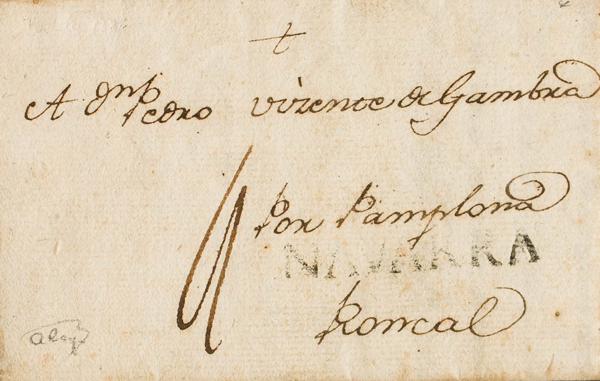 A Dn Pedro Vizente de Gambra
Por Pamplona
NAVARRA
Roncal